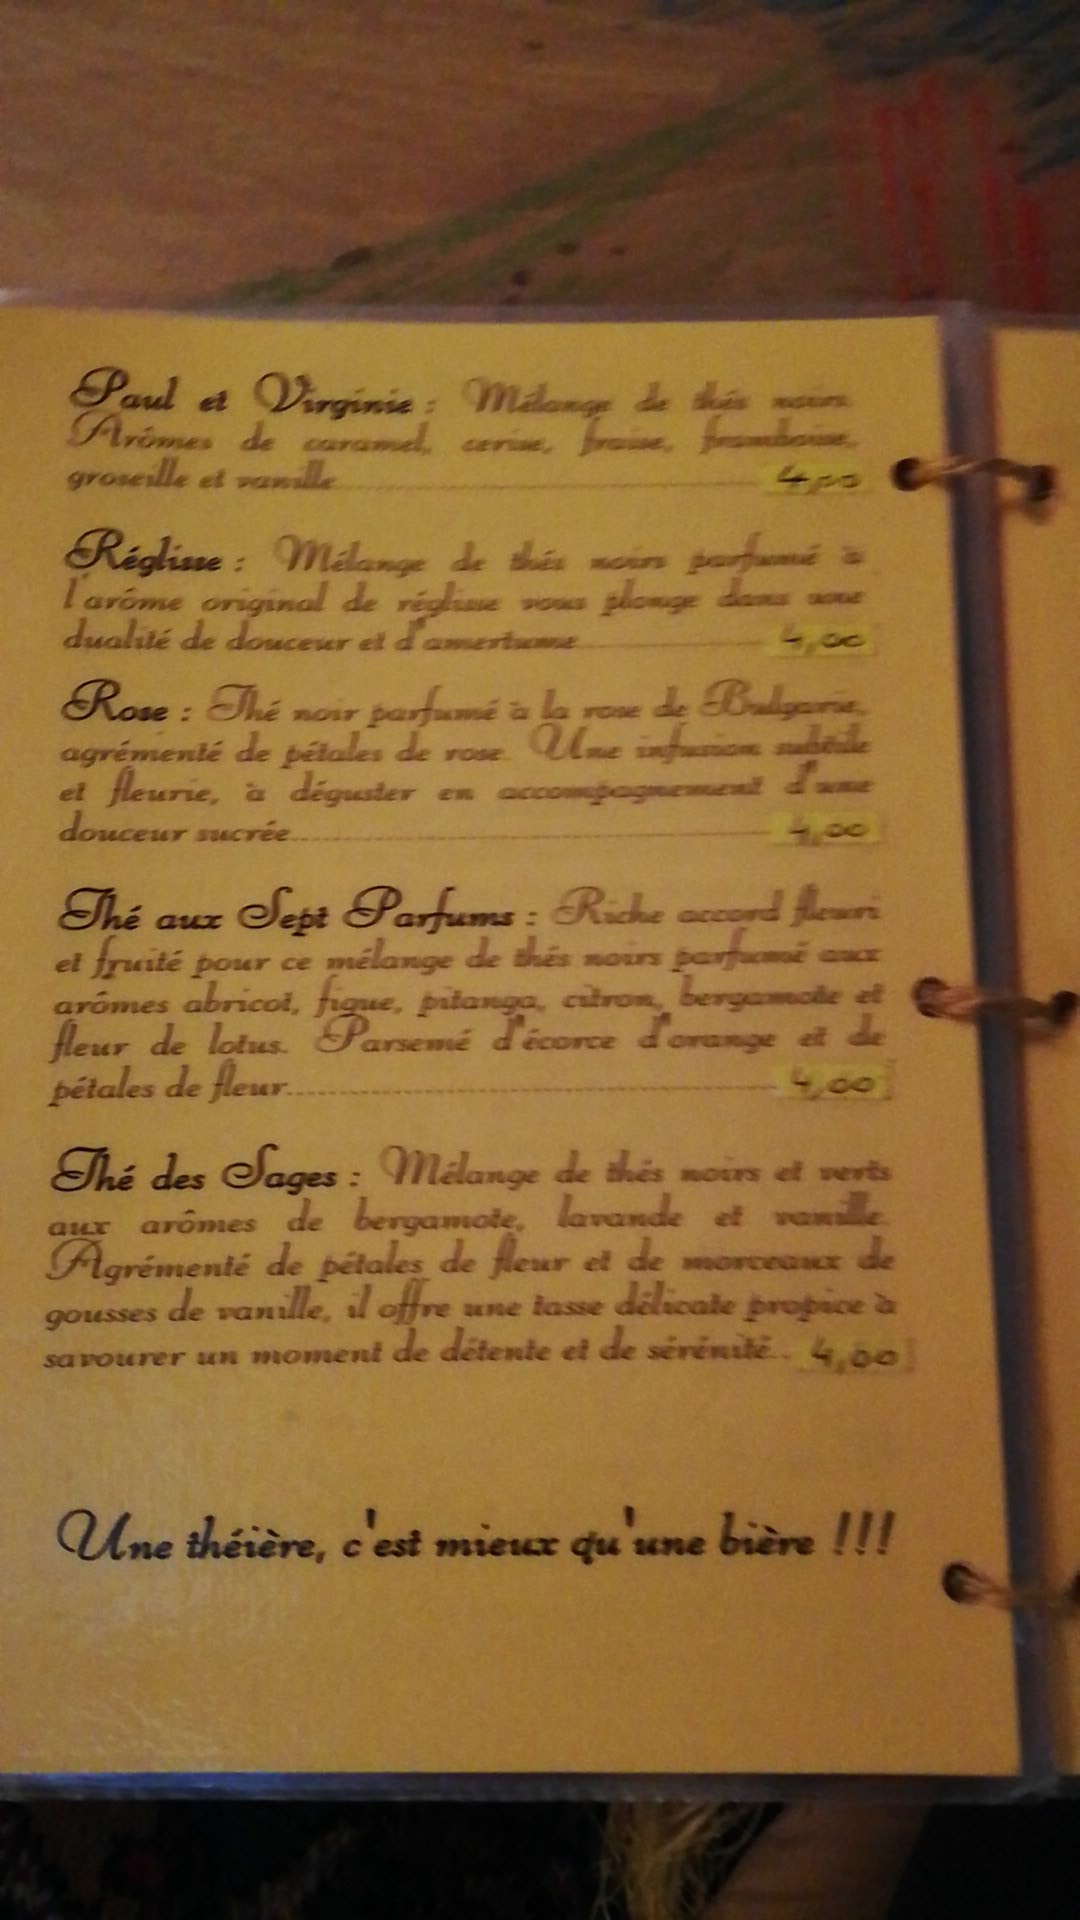 Paul et Virginie : Mélange de thés noirs.
Arômes de caramel, cerise, fraise, framboise,
groseille et vanille.......... 4,00
Réglisse : Mélange de thés noirs parfumé à
l'arôme original de réglisse vous plonge dans une
dualité de douceur et d'amertume.......... 4,00
Rose : Thé noir parfumé à la rose de Bulgarie,
agrémenté de pétales de rose. Une infusion subtile
et fleurie, à déguster en accompagnement d'une
douceur sucrée.......... 4,00
Thé aux Sept Parfums : Riche accord fleuri
et fruité pour ce mélange de thés noirs parfumé aux
arômes abricot, figue, pitanga, citron, bergamote et
fleur de lotus. Parsemé d'écorce d'orange et de
pétales de fleur.......... 4,00
Thé des Sages : Mélange de thés noirs et verts
aux arômes de bergamote, lavande et vanille.
Agrémenté de pétales de fleur et de morceaux de
gousses de vanille, il offre une tasse délicate propice à
savourer un moment de détente et de sérénité.. 4,00
Une théière, c'est mieux qu'une bière !!!